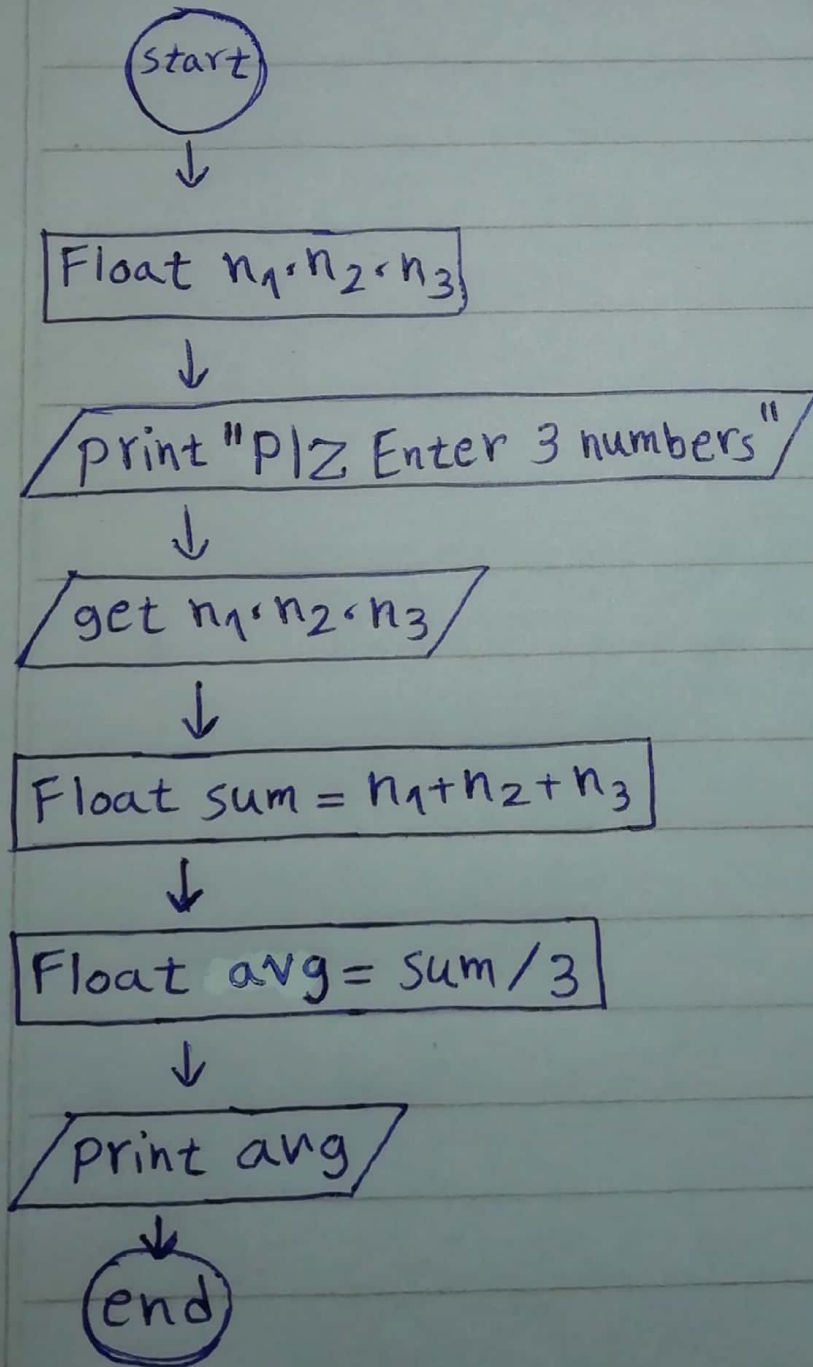 start
Float n1، n2، n3
print "Plz Enter 3 numbers"
get n1، n2، n3
Float sum = n1+n2+n3
Float avg = sum/3
print avg
end